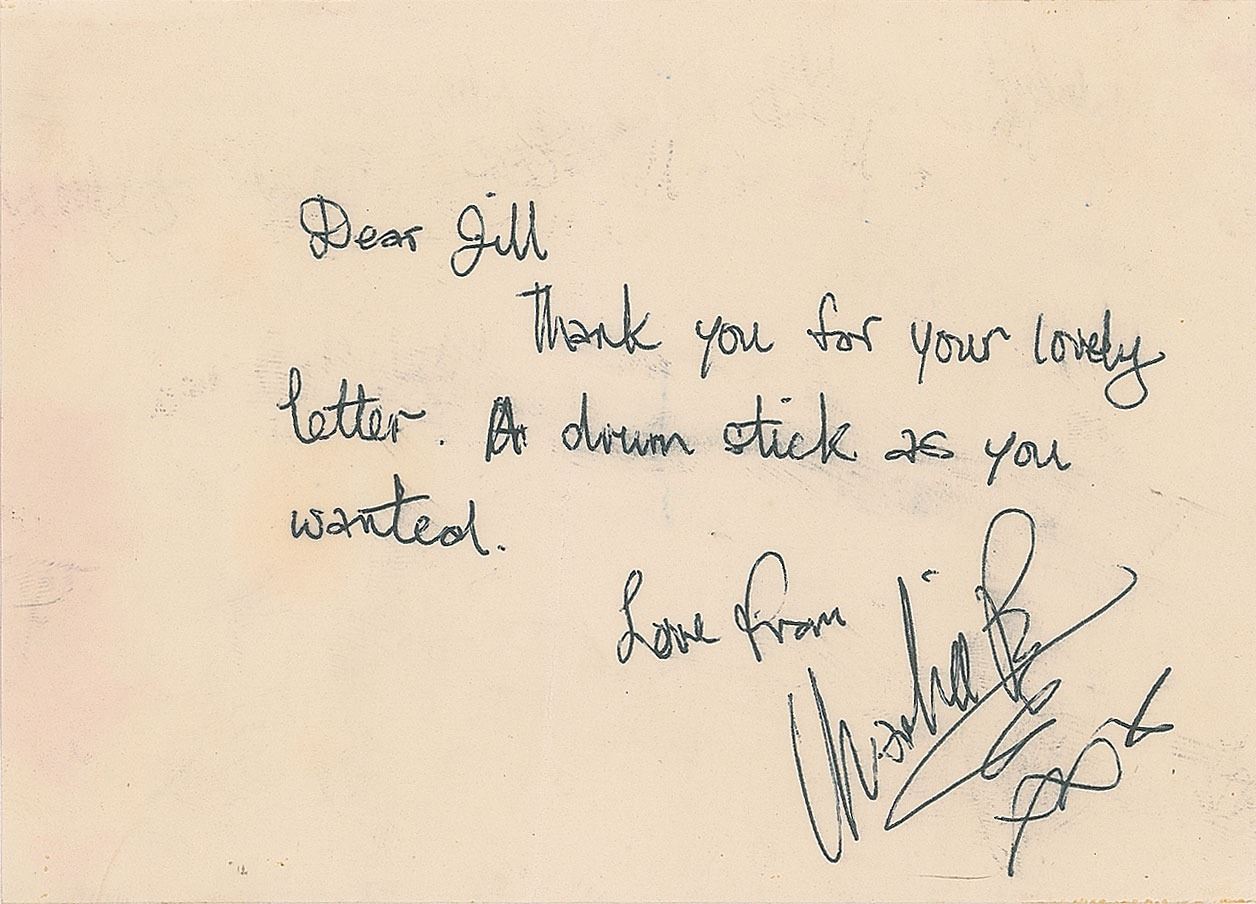 Dear Jill
Thank you for your lovely
letter. A drum stick as you
wanted.
Love from